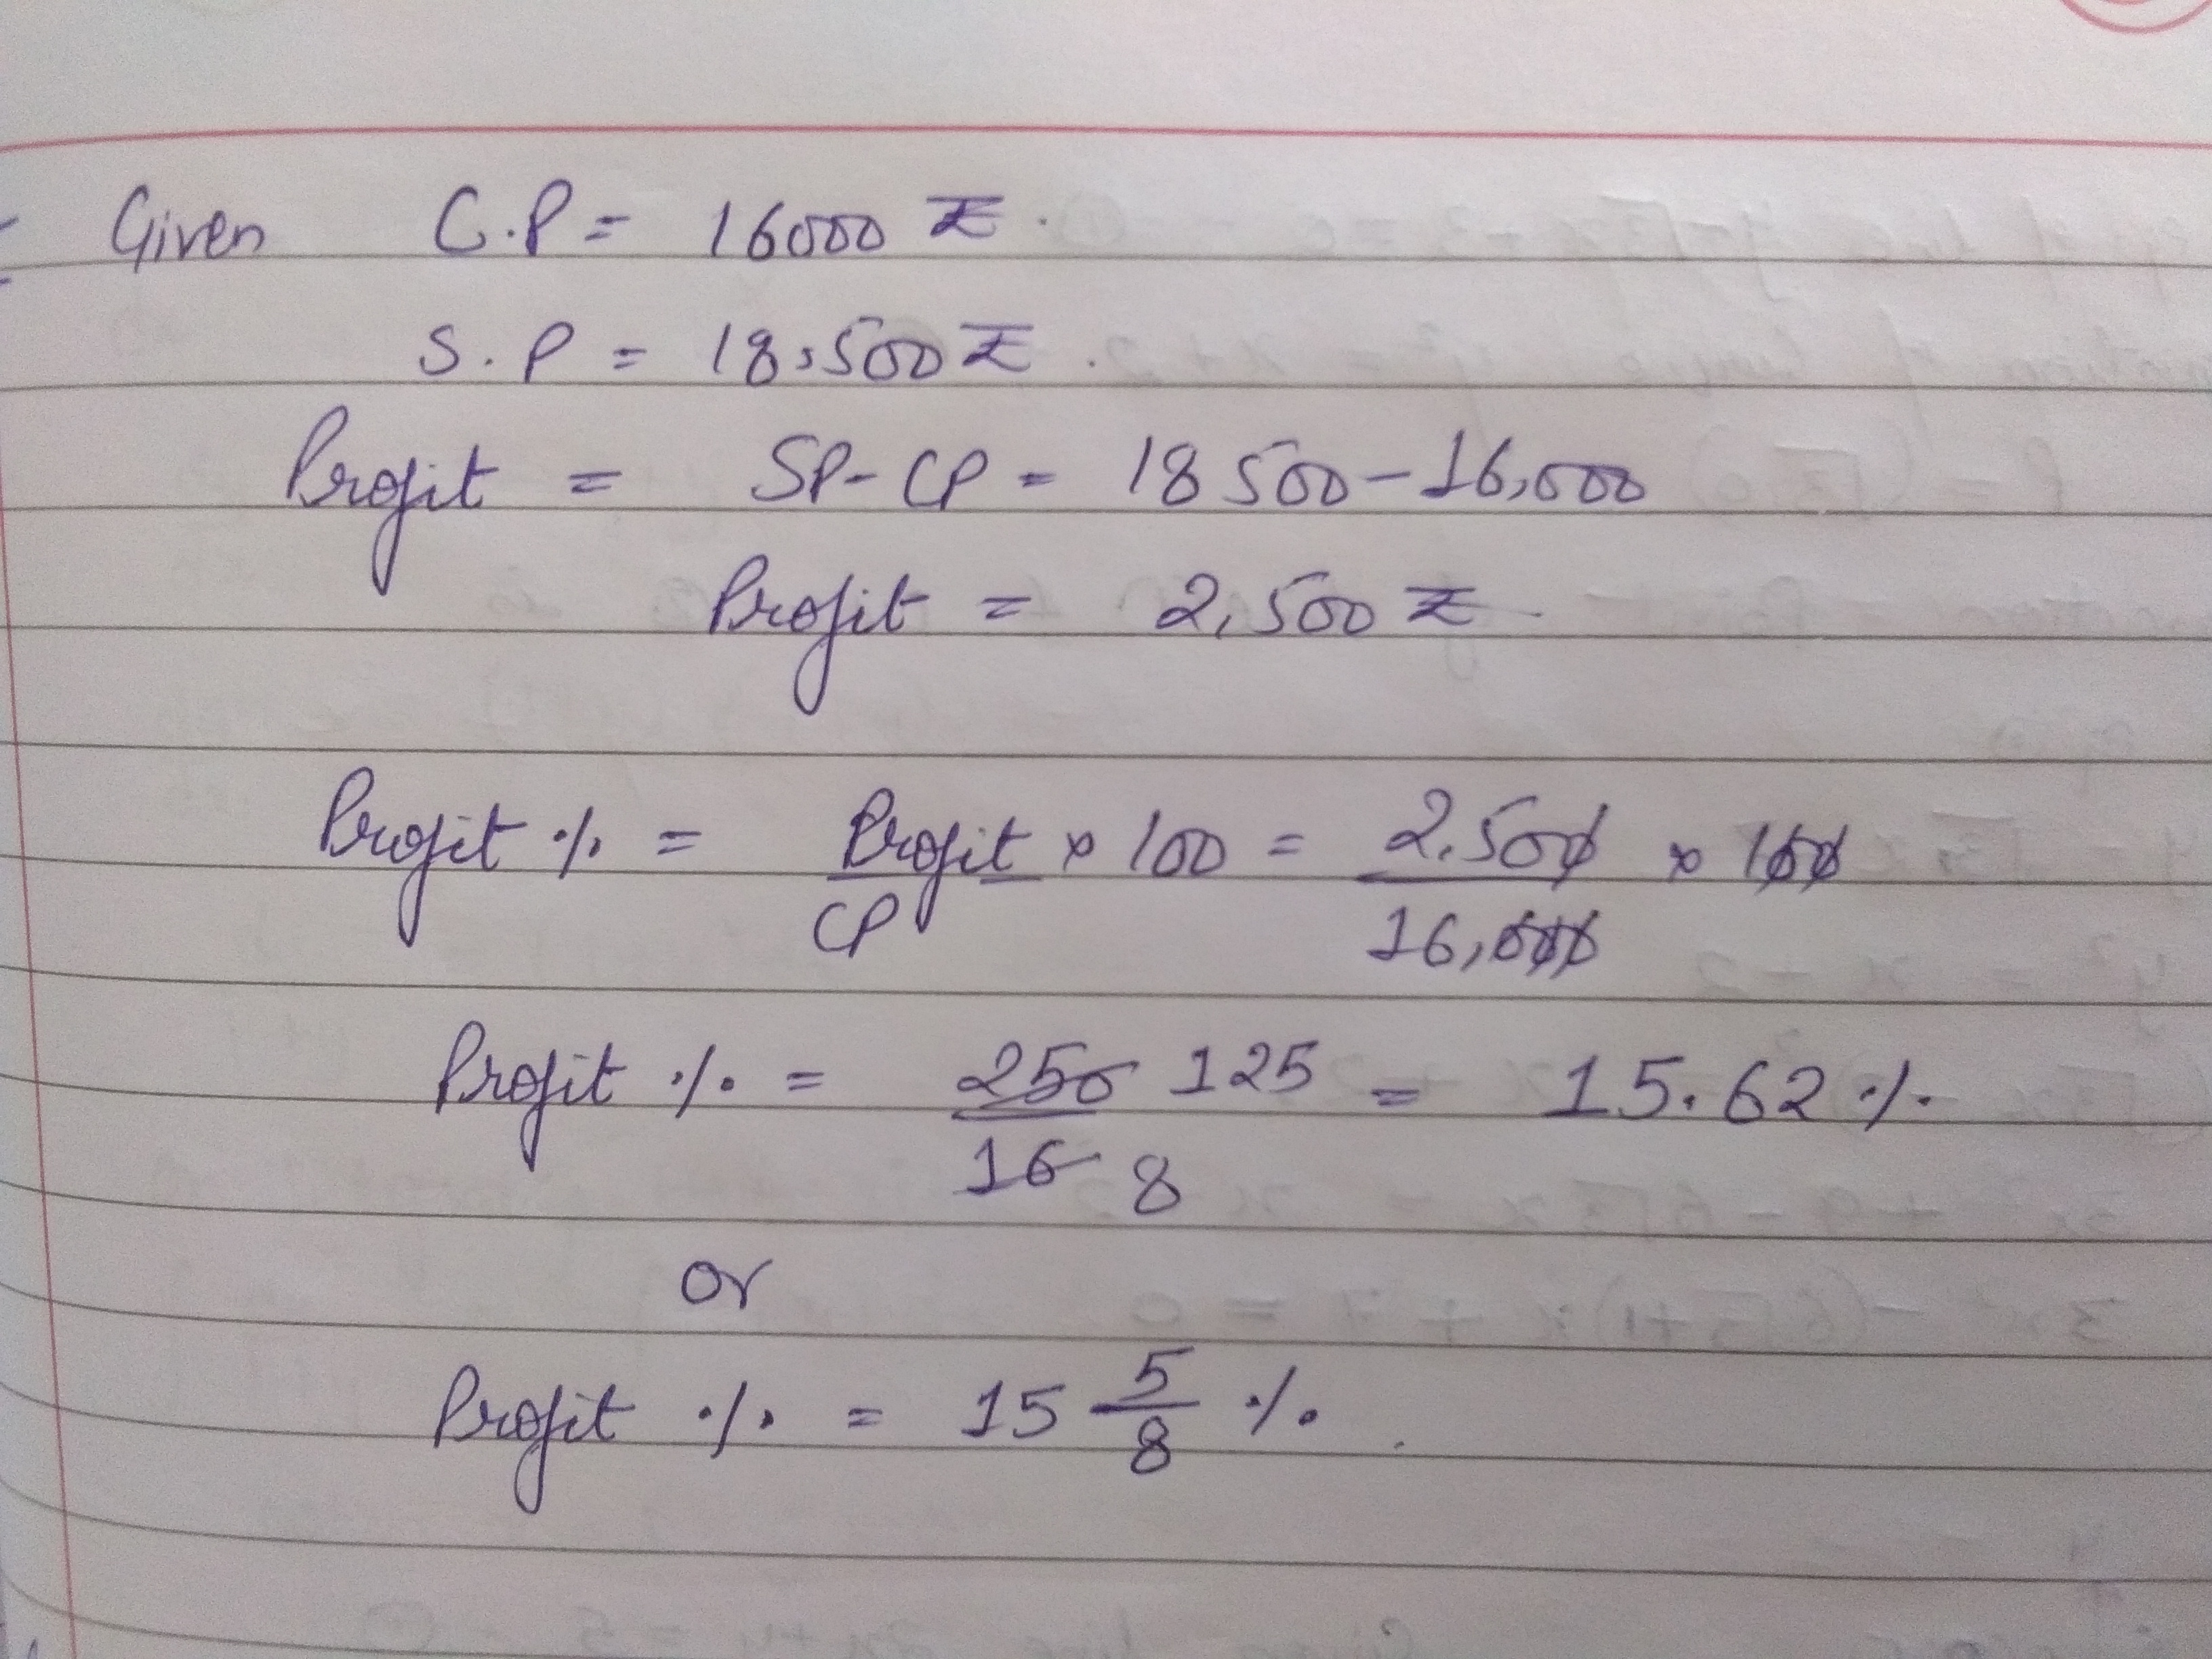 Given C.P = 16000 ₹.
S.P = 18,500 ₹.
Profit = SP - CP = 18 500 - 16,000
Profit = 2,500 ₹.
Profit % = Profit/CP × 100 = 2,500/16,000 × 100
Profit % = 250/16 125/8 = 15.62 %
or
Profit % = 15 5/8 %.